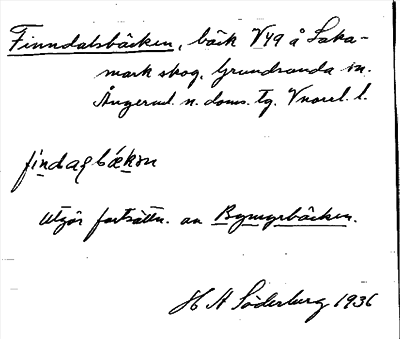 Finndalsbäcken, bäck V49 å Laka-
mark skog, Grundsunda sn.
Ångerml. n. doms. tg. Vnorrl. l.
findagbækɷn
Utgör fortsättn. av Bymyrbäcken.
H A Söderberg 1936